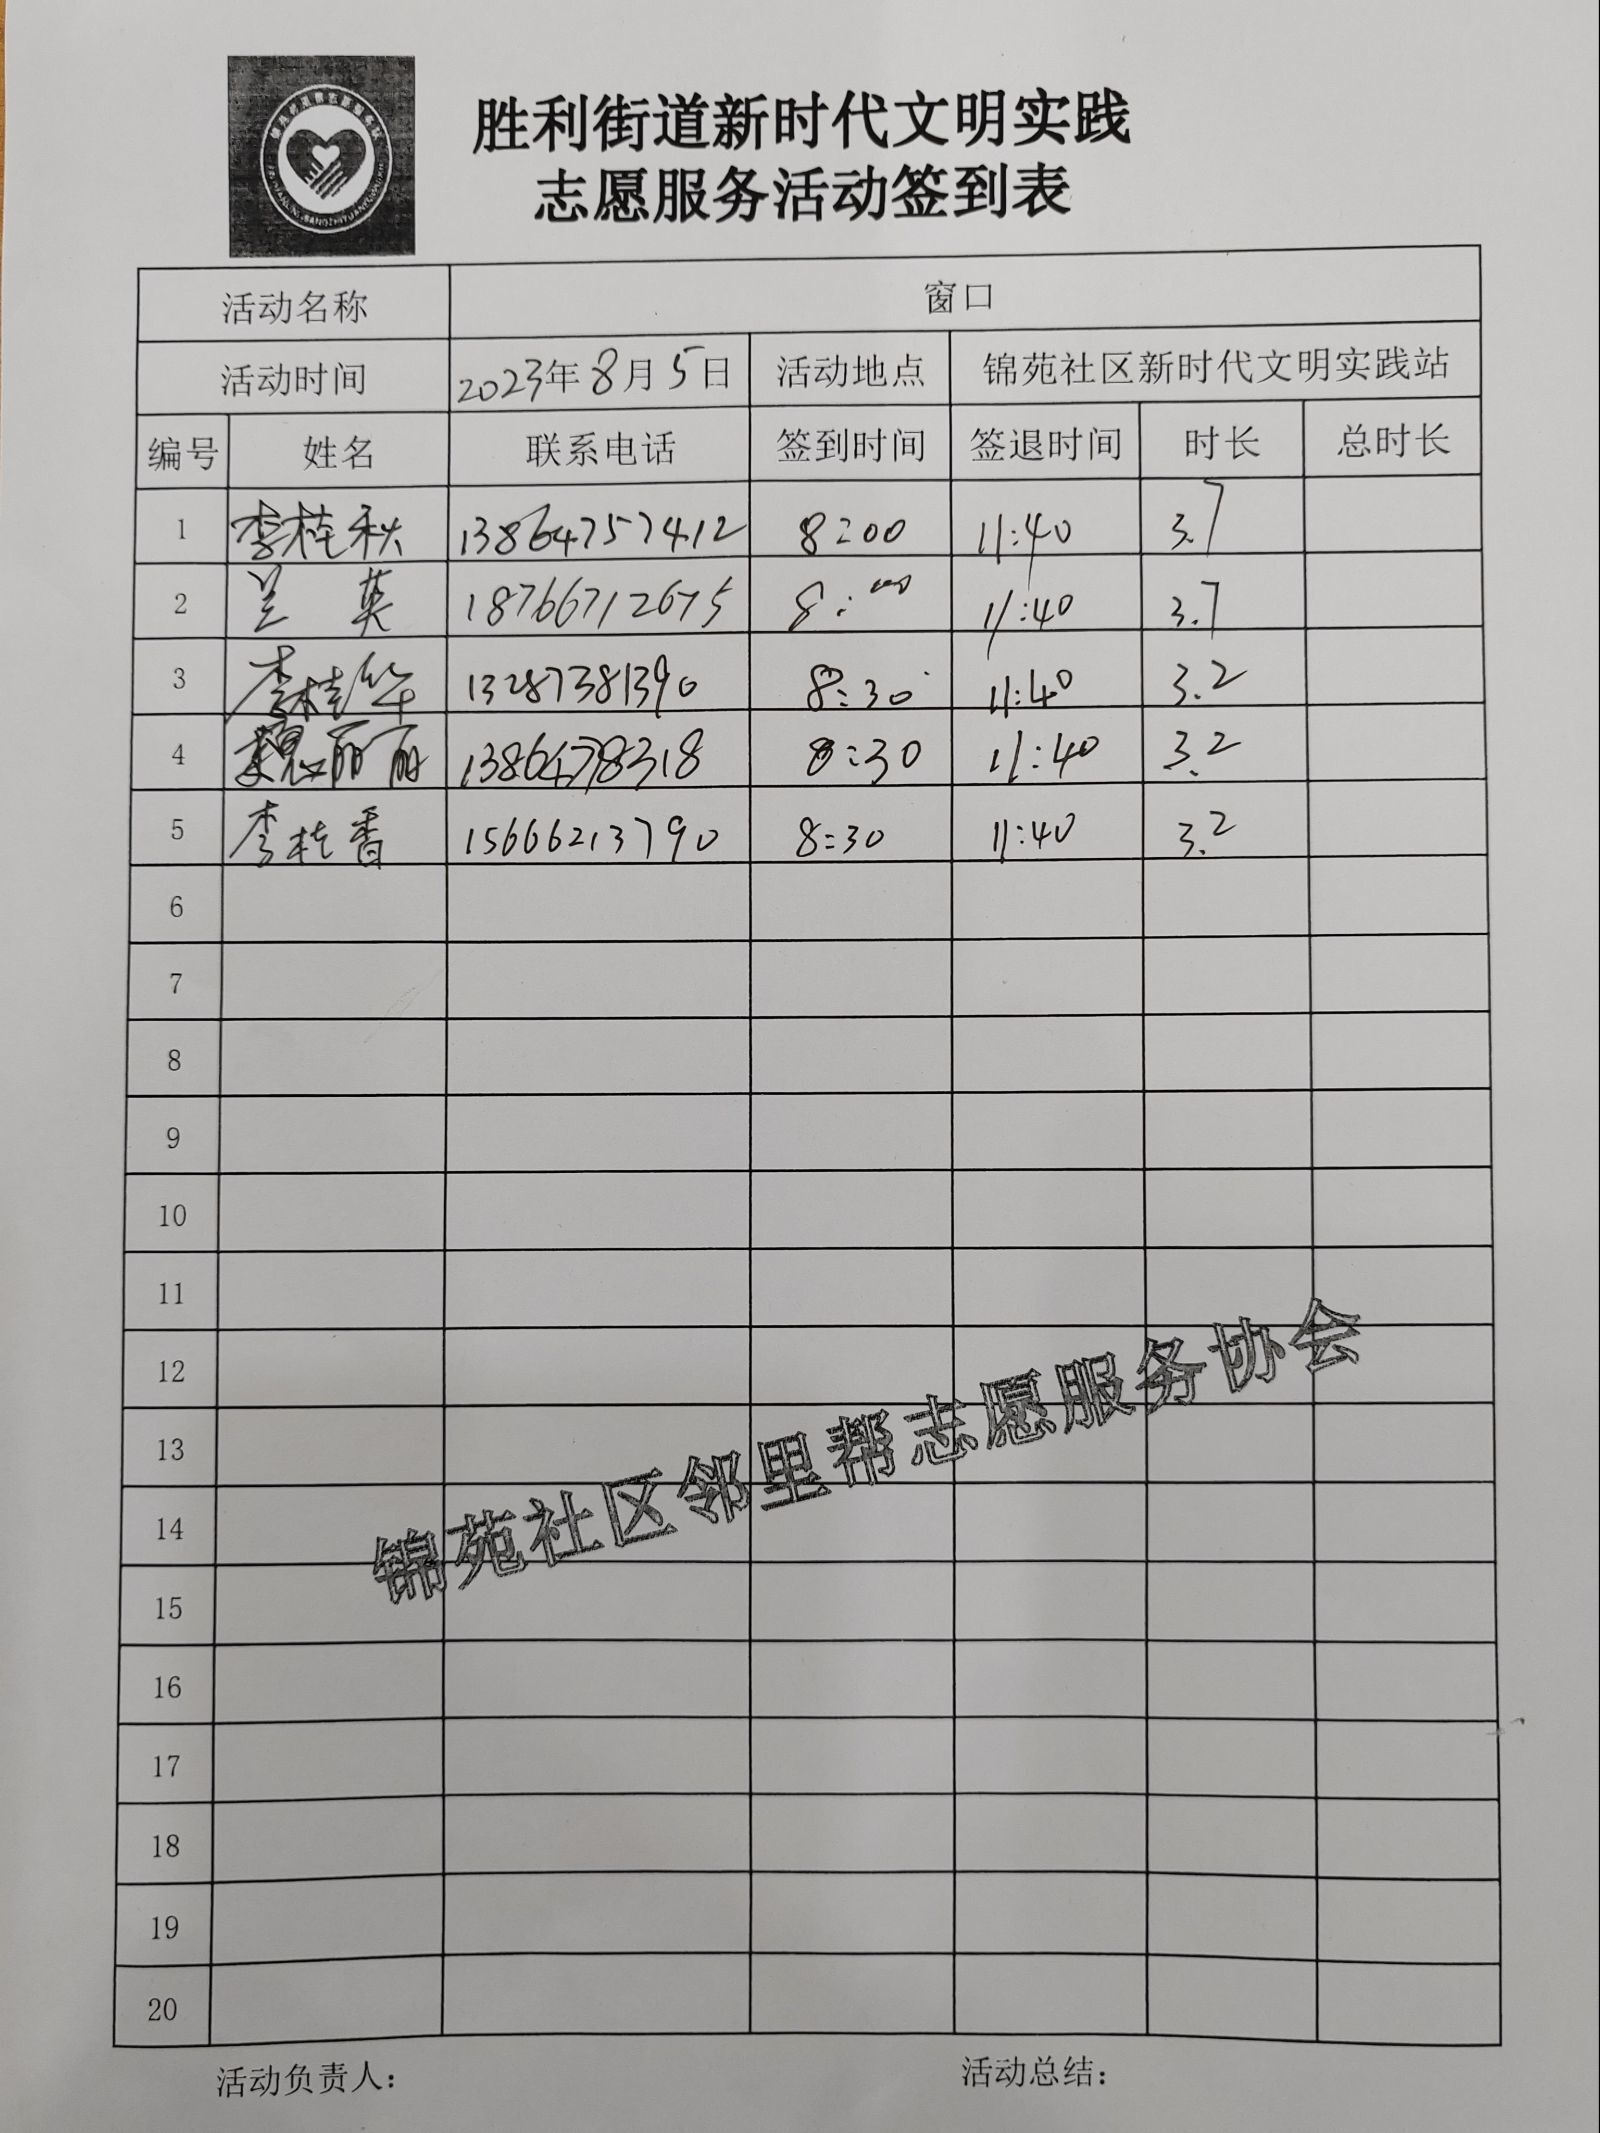 胜利街道新时代文明实践
志愿服务活动签到表
活动名称 窗口
活动时间 2023年8月5日 活动地点 锦苑社区新时代文明实践站
编号 姓名 联系电话 签到时间 签退时间 时长 总时长
1 李桂秋 13864757412 8:00 11:40 3.7
2 兰英 18766712675 8:00 11:40 3.7
3 李桂华 13287381390 8:30 11:40 3.2
4 魏丽丽 1386478318 8:30 11:40 3.2
5 李桂香 15666213790 8:30 11:40 3.2
6
7
8
9
10
11
12
13
14
15
16
17
18
19
20
锦苑社区邻里帮志愿服务协会
活动负责人： 活动总结：